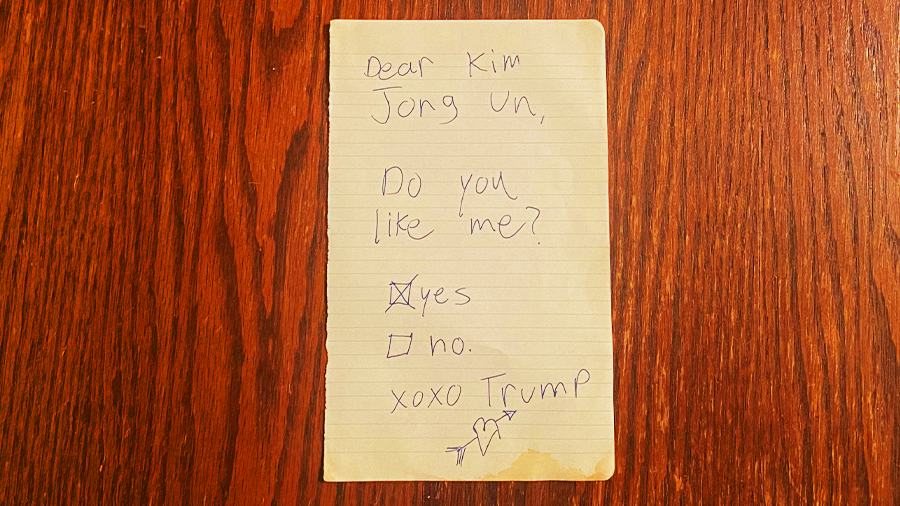 Dear Kim
Jong Un,
Do you
like me?
☒ yes
☐ no.
xoxo Trump